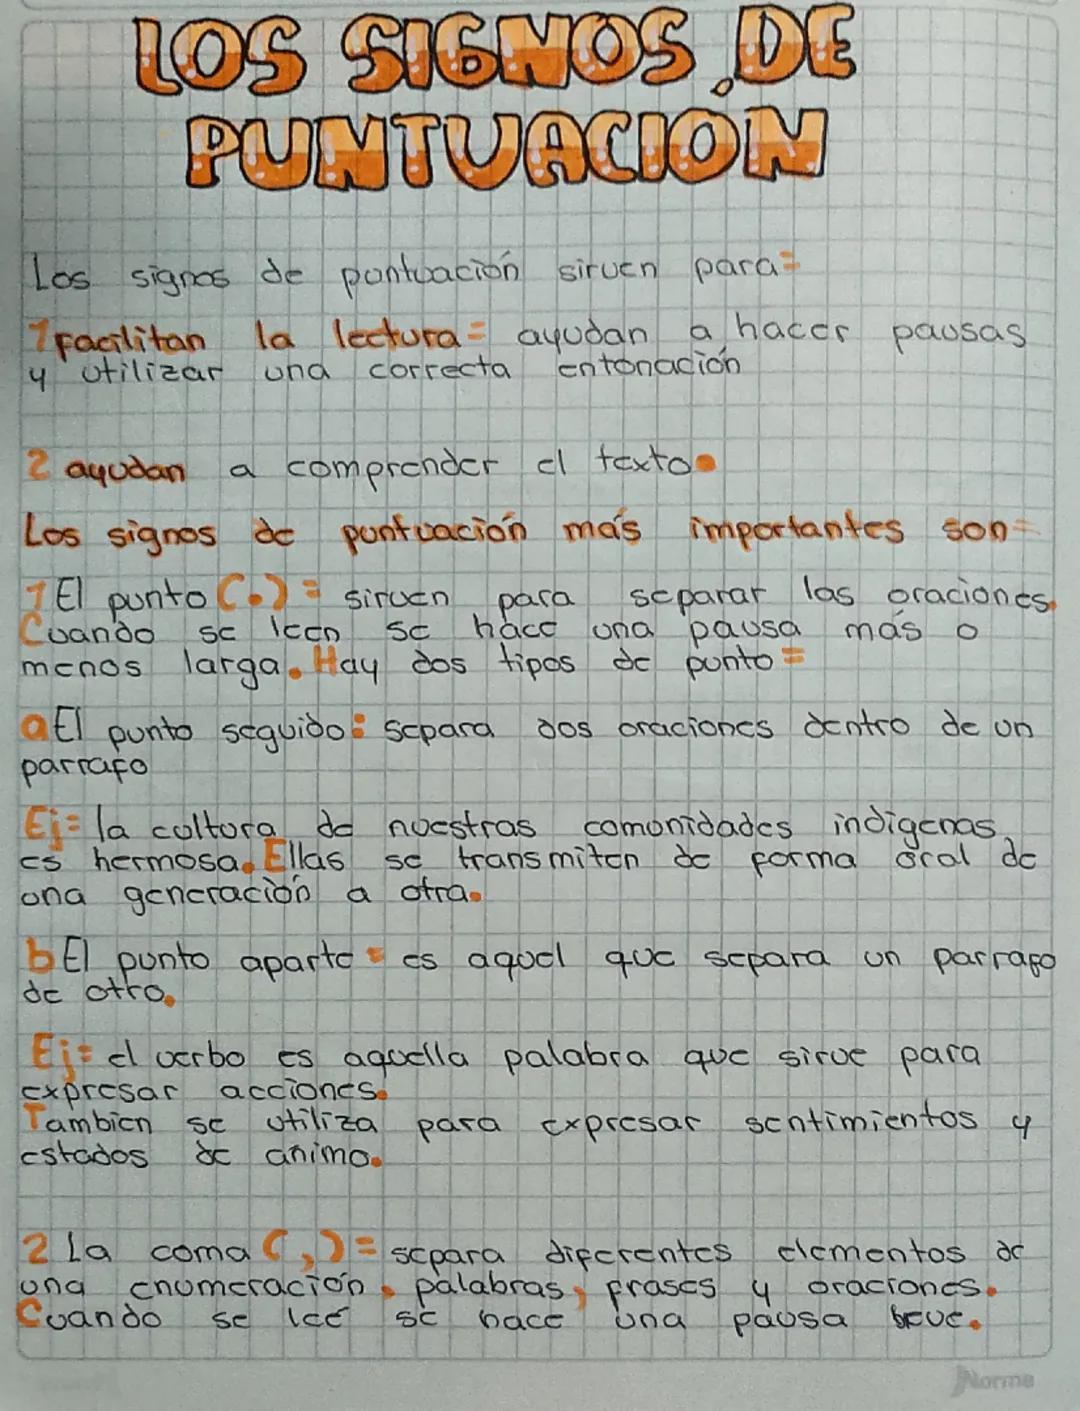 LOS SIGNOS DE
PUNTUACIÓN
Los signos de puntuación sirven para=
1 facilitan la lectura= ayudan a hacer pausas
y utilizar una correcta entonación
2 ayudan a comprender el texto.
Los signos de puntuación más importantes son=
1 El punto (.) = sirven para separar las oraciones.
Cuando se leen se hace una pausa más o
menos larga. Hay dos tipos de punto =
a El punto seguido: separa dos oraciones dentro de un
parrafo
Ej= la cultura de nuestras comunidades indígenas
es hermosa. Ellas se transmiten de forma oral de
una generación a otra.
b El punto aparte = es aquel que separa un parrafo
de otro.
Ej= el verbo es aquella palabra que sirve para
expresar acciones.
Tambien se utiliza para expresar sentimientos y
estados de animo.
2 La coma (,) = separa diferentes elementos de
una enumeración, palabras, frases y oraciones.
Cuando se leé se hace una pausa breve.
Norma